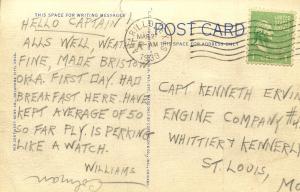 THIS SPACE FOR WRITING MESSAGES
HELLO CAPTAIN!
ALLS WELL, WEATHER
FINE, MADE BRISTOW
OKLA. FIRST DAY. HAD
BREAKFAST HERE. HAVE
KEPT AVERAGE OF 50
SO FAR PLY. IS PERKING
LIKE A WATCH.
WILLIAMS
POST CARD
CAPT KENNETH ERVIN
ENGINE COMPANY
WHITTIER & KENNERLY
ST. LOUIS,